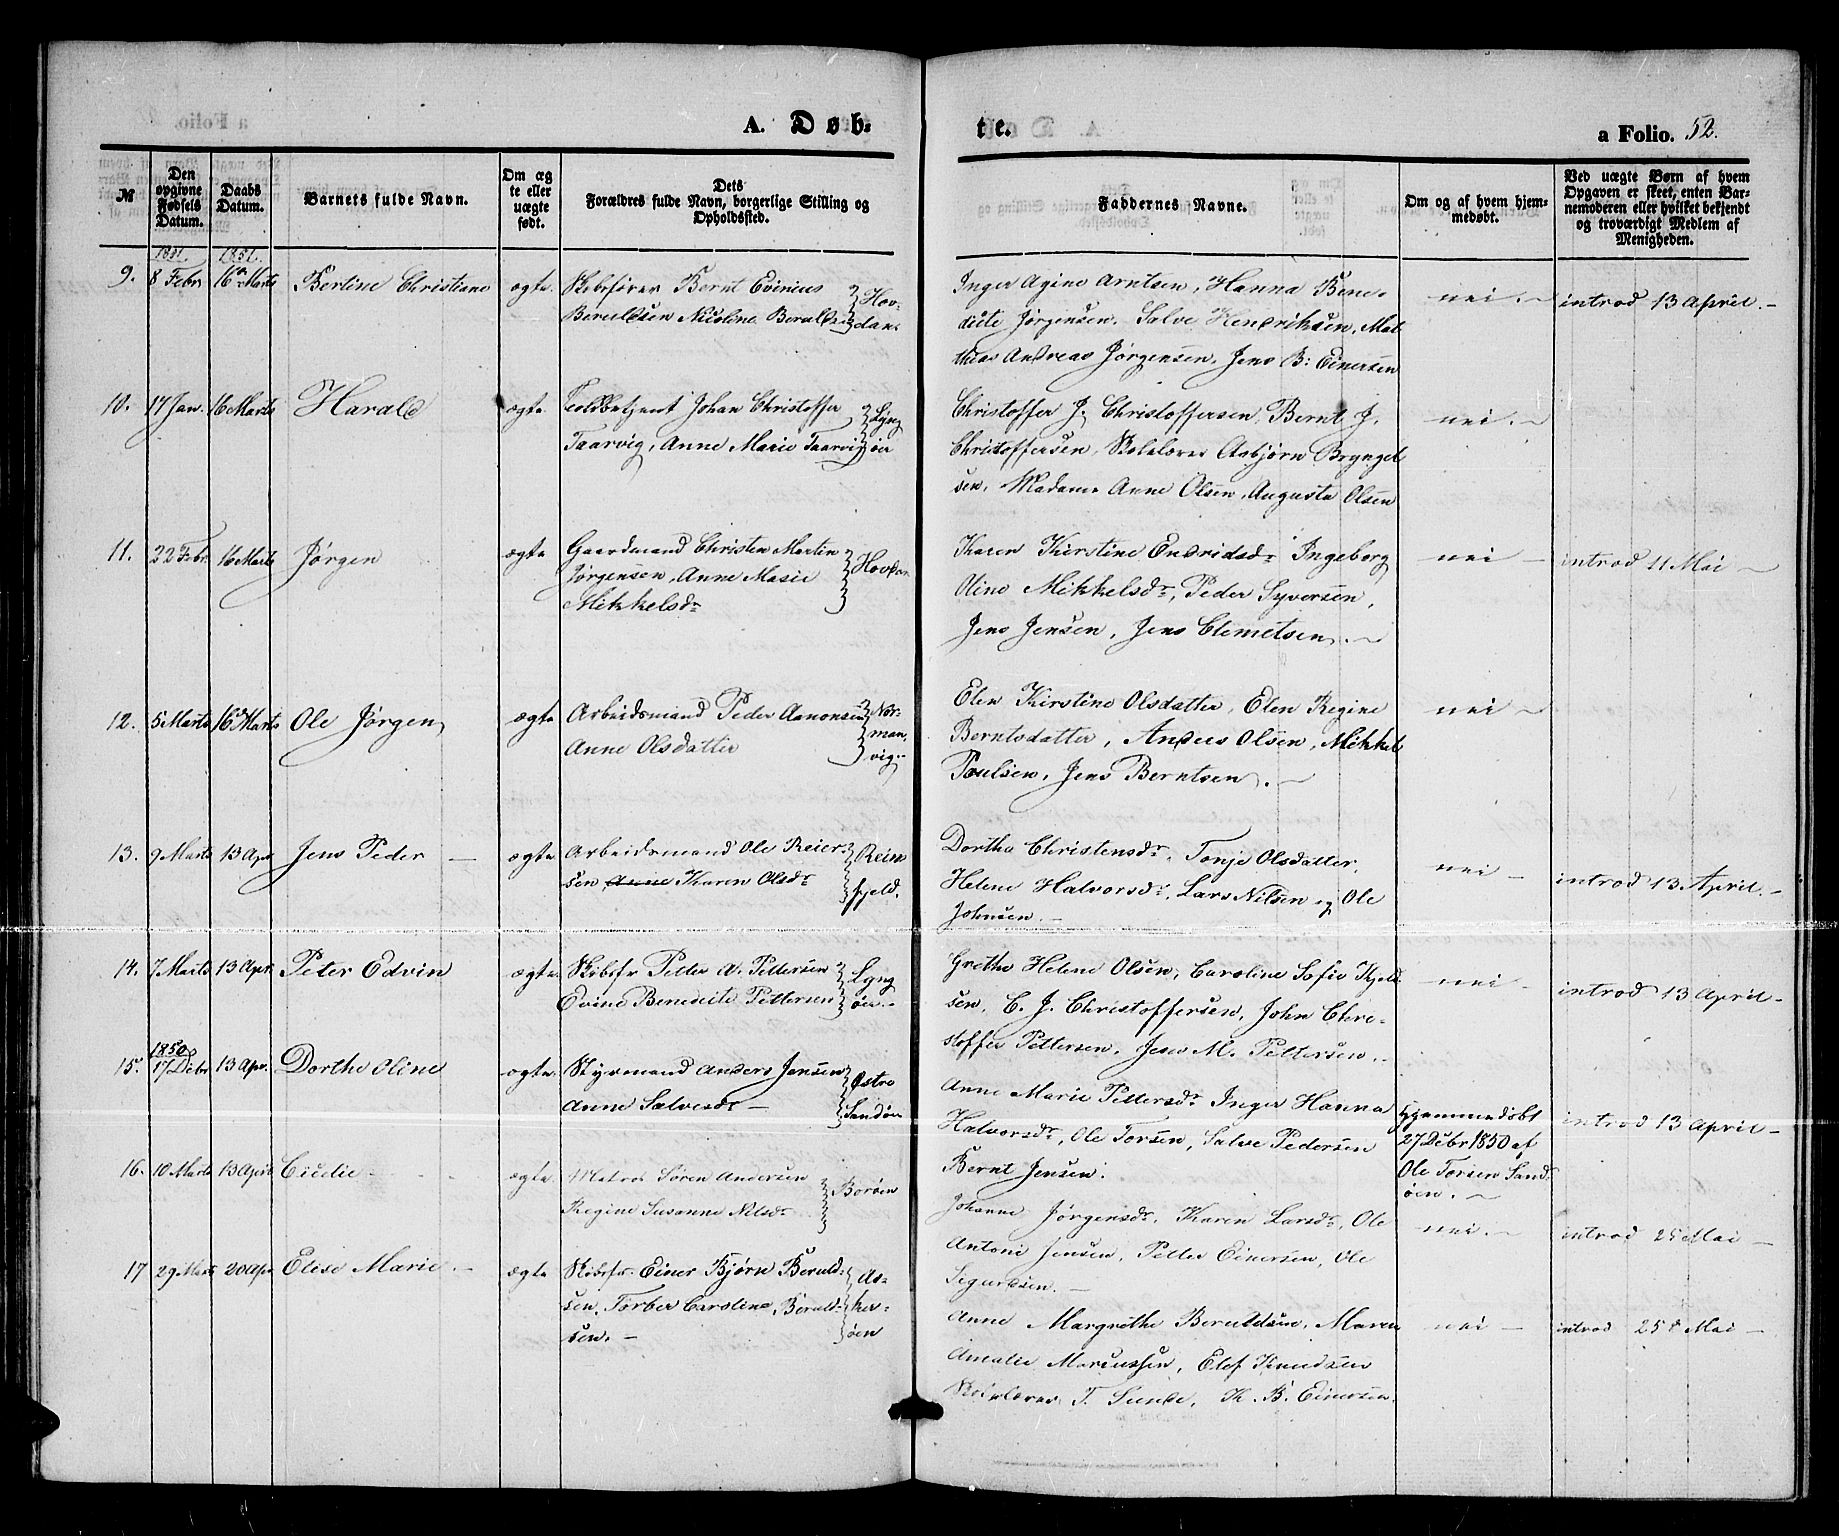 A. Døb=
te.
a Folio. 52.
№
Den opgivne Fødsels Datum.
Daabs Datum.
Barnets fulde Navn.
Om ægte eller uægte født.
Dets Forældres fulde Navn, borgerlige Stilling og Opholdssted.
Faddernes Navne.
Om og af hvem hjemmedøbt.
Ved uægte Børn af hvem Opgaven er skeet, enten Barnemoderen eller hvilket bekjendt og troværdigt Medlem af Menigheden.
1851. 1851.
9. 8 Febr 16 Marts Bertine Christiane ægte Skibsfører Bernt Evinius
Beruldsen Nicoline Beruldsen Hovdan.
Inger Agine Arntsen, Hanna Bene-
dicte Jørgensen. Salve Hendriksen, Mat
thias Andreas Jørgensen. Jens B: Einersen
nei. introd 13 April.
10. 17 Jan. 16 Marts Harald ægte Toldbetjent Johan Christoffer
Taarvig, Anne Marie Taarvig Lyngøer
Christoffer J. Christoffersen, Bernt J.
Christoffersen, Skolelærer Asbjørn Bryngel
sen. Madame Anne Olsen, Augusta Olsen
nei.
11. 22 Febr 16 Marts Jørgen ægte Gaardmand Christen Martin
Jørgensen, Anne Marie
Mikkelsdr Hovdan
Karen Kirstine Endridsdr Ingeborg
Oline Mikkelsdr, Peder Syversen,
Jens Jensen, Jens Clemetsen.
nei introd 11 Mai
12. 5 Marts 16 Marts Ole Jørgen ægte Arbeidsmand Peder Aanonsen
Anne Olsdatter Norman,vig
Elen Kirstine Olsdatter, Elen Regine
Berntsdatter, Anders Olsen, Mikkel
Poulsen, Jens Berntsen.
nei
13. 9 Marts 13 Apr Jens Peder ægte Arbeidsmand Ole Reier
sen Anne Karen Olsdr Reinsfjeld.
Dorthe Christensdr, Tonje Olsdatter,
Helene Halvorsdr, Lars Nilsen og Ole
Johnsen.
nei introd 13 April.
14. 7 Marts 13 Apr. Peter Edvin ægte Skibsfr Petter A. Pettersen
Edvine Benedicte Pettersen Lyngøer.
Grethe Helene Olsen, Caroline Sofie Kjeld
sen, C. J. Christoffersen, John Chri-
stoffer Pettersen, Jens M. Pettersen.
nei introd 13 April
1850
15. 17 Debr 13 Apr. Dorthe Oline ægte Styrmand Anders Jensen
Anne Salvesdr Østre Sandøen
Anne Marie Pettersdr Inger Hanna
Halvorsdr, Ole Torsen, Salve Pedersen
Bernt Jensen.
Hjemmedøbt
27 Debr 1850 af
Ole Torsen Sand
øen.
introd 13 April
16. 10 Marts 13 Apr Cicilie ægte Matros Søren Andersen
Regine Susanne Nilsdr Borøen
Johanne Jørgensdr, Karen Larsdr, Ole
Antoni Jensen, Petter Einersen, Ole
Segurdsen.
nei. introd 25 Mai
17 29 Marts 20 Apr Elise Marie ægte Skibsfr. Einer Bjørn Beruld-
sen, Torber Caroline, Beruld-
sen. Askerøen
Anne Margrethe Beruldsen, Maren
Amalie Marcussen, Elef Knudsen
Skolelærer T. Sunde, K. B. Einersen.
nei introd 25 Mai